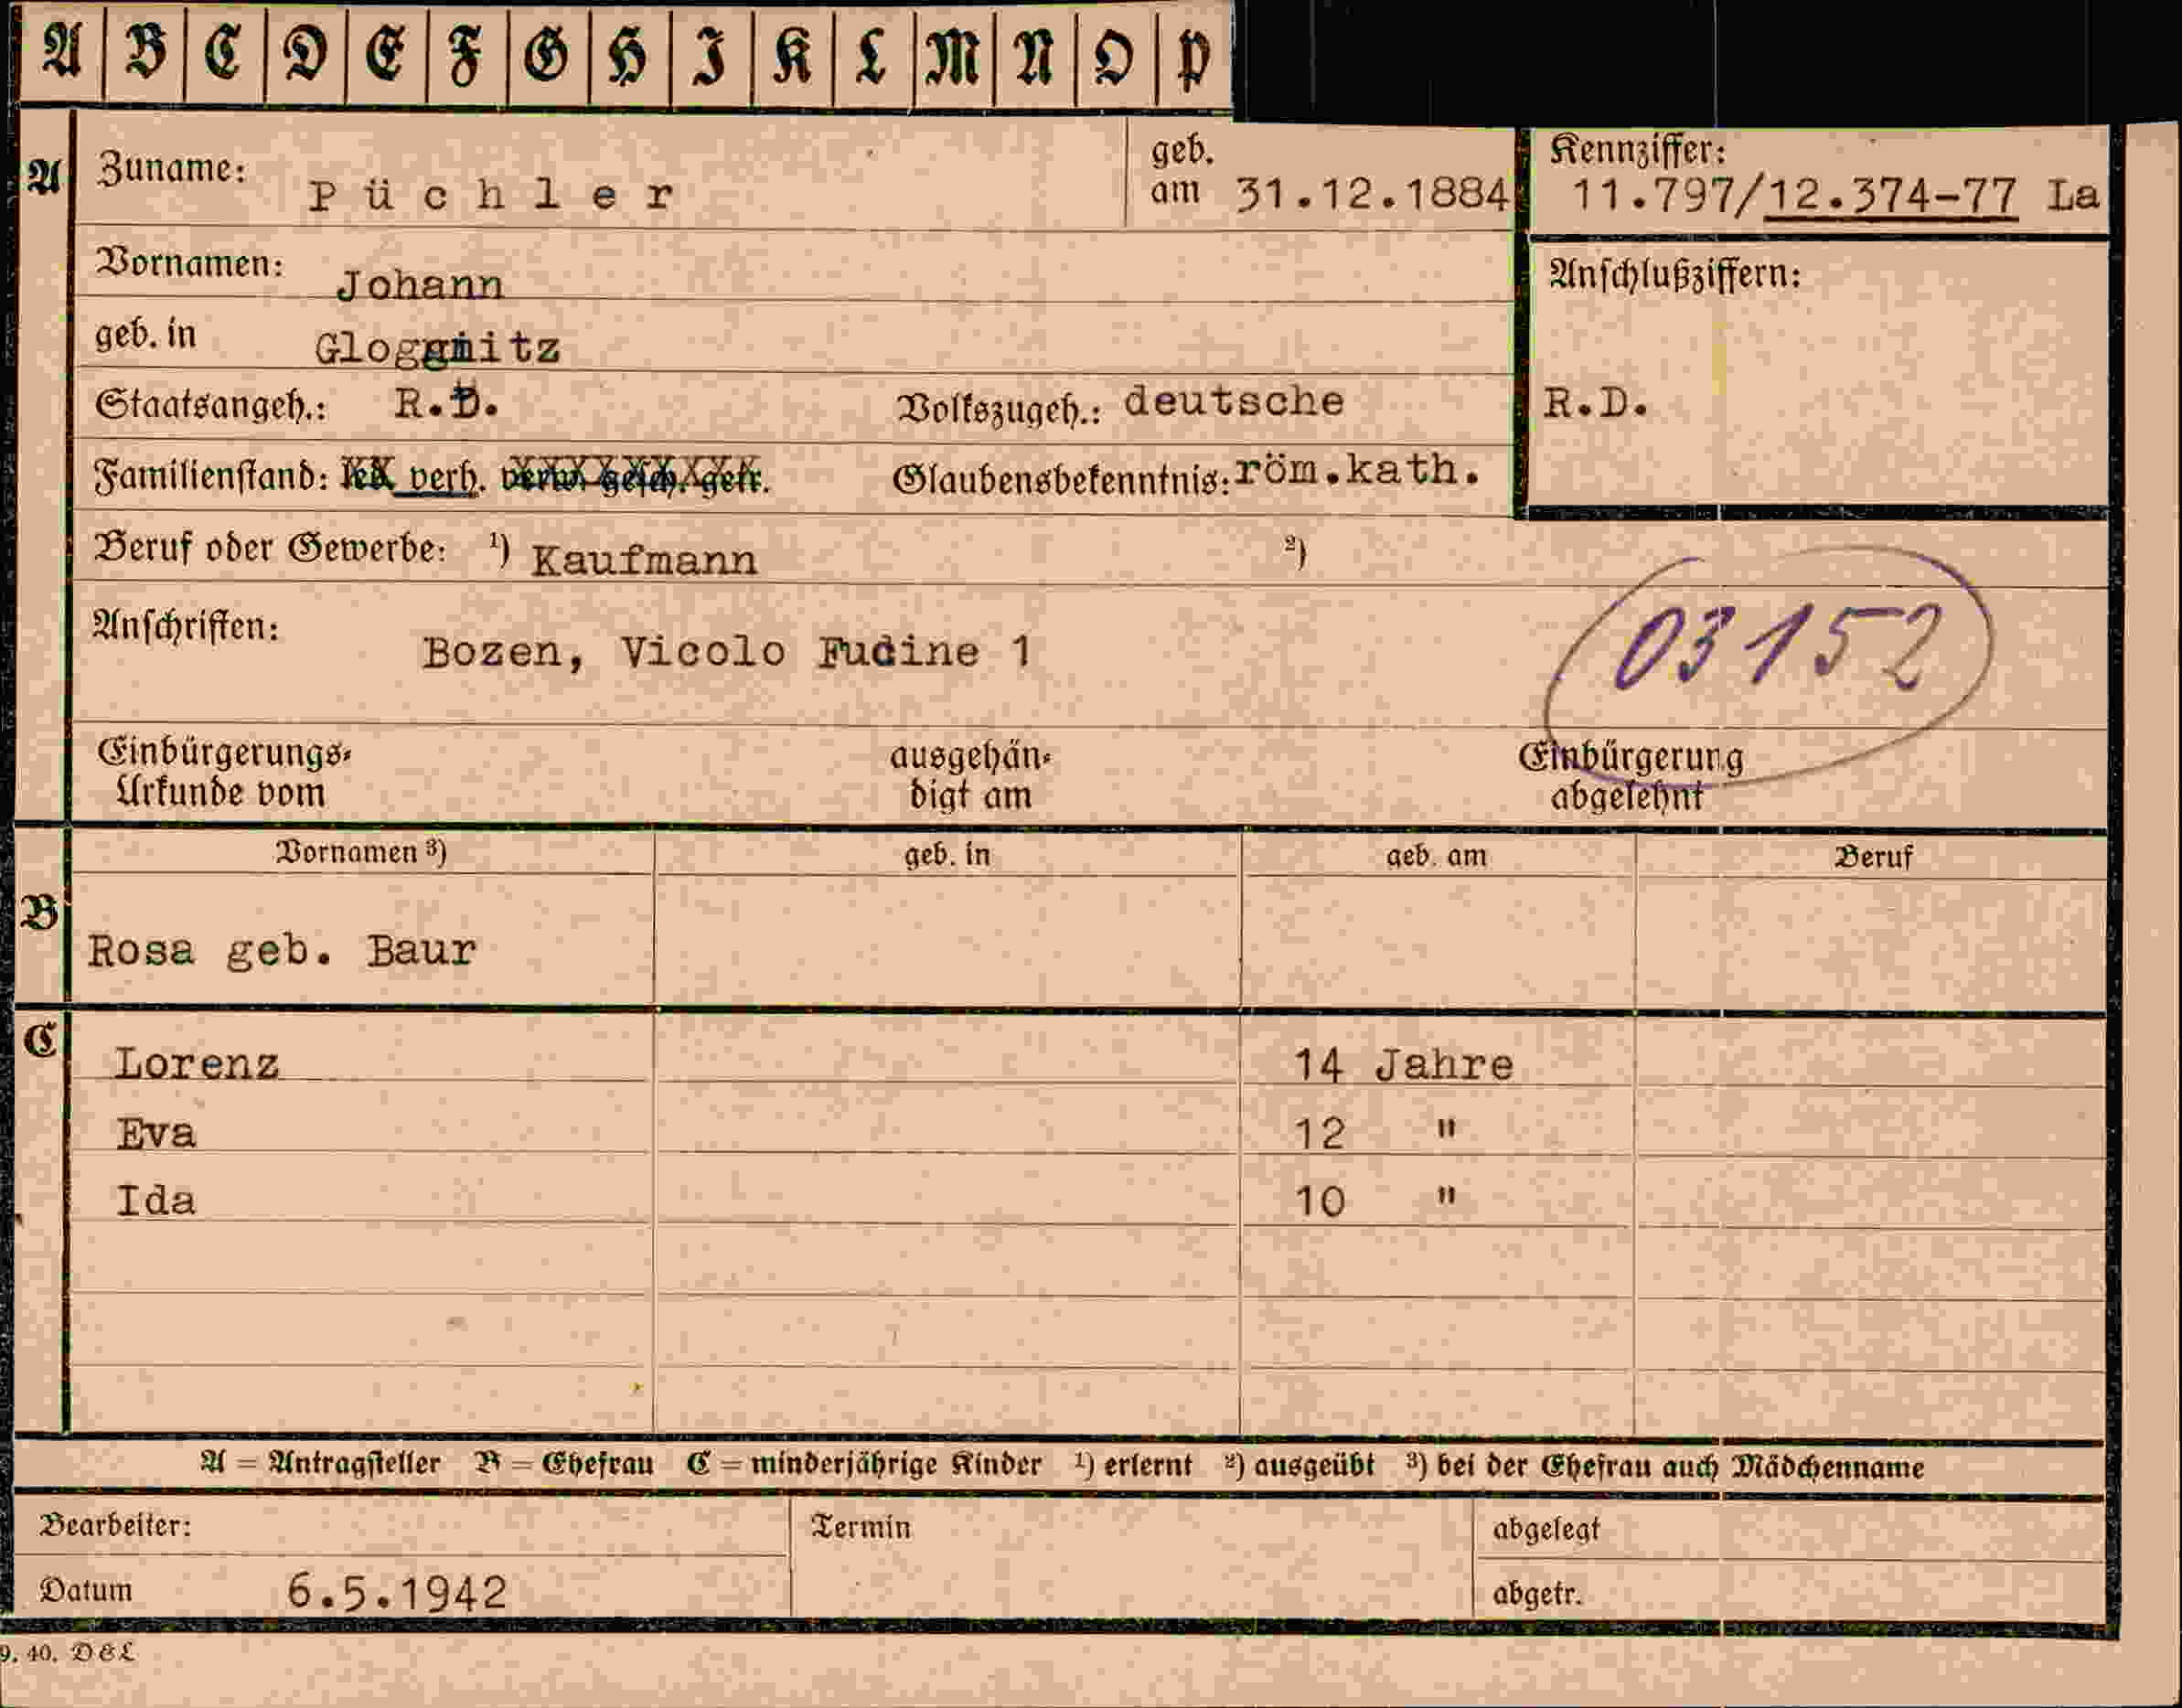 A B C D E F G H I K L M N O P
A Zuname: Püchler geb. am 31.12.1884 Kennziffer: 11.797/12.374-77 La
Vornamen: Johann Anschlußziffern:
geb. in Gloggnitz
Staatsangeh.: R.D. Volkszugeh.: deutsche R.D.
Familienstand: led. verh. verw. gesch. getr. Glaubensbekenntnis: röm.kath.
Beruf oder Gewerbe: ¹) Kaufmann ²)
03152
Anschriften: Bozen, Vicolo Fudine 1
Einbürgerungs- ausgehän- Einbürgerung
Urkunde vom digt am abgelehnt
Vornamen ³) geb. in geb. am Beruf
B Rosa geb. Baur
C Lorenz 14 Jahre
Eva 12 "
Ida 10 "
A = Antragsteller B = Ehefrau C = minderjährige Kinder ¹) erlernt ²) ausgeübt ³) bei der Ehefrau auch Mädchenname
Bearbeiter: Termin abgelegt
Datum 6.5.1942 abgetr.
9. 40.